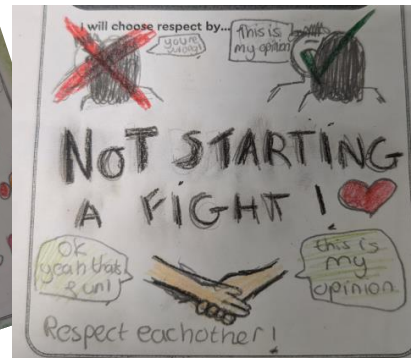 I will choose respect by...
you're wrong!
This is
my opinion
NOT STARTING
A FIGHT!
Ok
yeah thats
fun!
this is
my
opinion.
Respect eachother!